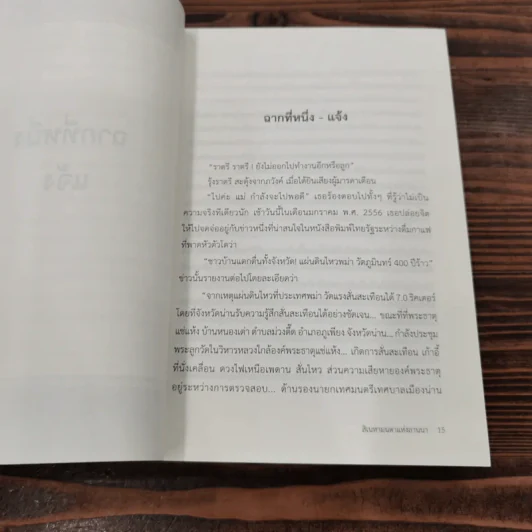 ฉากที่หนึ่ง - แจ้ง
"ราตรี ราตรี ! ยังไม่ออกไปทำงานอีกหรือลูก"
รุ้งราตรี สะดุ้งจากภวังค์ เมื่อได้ยินเสียงผู้มารดาเตือน
"ไปค่ะ แม่ กำลังจะไปพอดี" เธอร้องตอบไปทั้งๆ ที่รู้ว่าไม่เป็น
ความจริงทีเดียวนัก เช้าวันนี้ในเดือนมกราคม พ.ศ. 2556 เธอปล่อยจิต
ให้ไปจดจ่ออยู่กับข่าวหนึ่งที่น่าสนใจในหนังสือพิมพ์ไทยรัฐระหว่างดื่มกาแฟ
ที่พาดหัวตัวโตว่า
"ชาวบ้านแตกตื่นทั้งจังหวัด! แผ่นดินไหวพม่า วัดภูมินทร์ 400 ปีร้าว"
ข่าวนั้นรายงานต่อไปโดยละเอียดว่า
"จากเหตุแผ่นดินไหวที่ประเทศพม่า วัดแรงสั่นสะเทือนได้ 7.0 ริคเตอร์
โดยที่จังหวัดน่านรับความรู้สึกสั่นสะเทือนได้อย่างชัดเจน... ขณะที่ที่พระธาตุ
แช่แห้ง บ้านหนองเต่า ตำบลม่วงตึ๊ด อำเภอภูเพียง จังหวัดน่าน... กำลังประชุม
พระลูกวัดในวิหารหลวงใกล้องค์พระธาตุแช่แห้ง... เกิดการสั่นสะเทือน เก้าอี้
ที่นั่งเคลื่อน ดวงไฟเหนือเพดาน สั่นไหว ส่วนความเสียหายองค์พระธาตุ
อยู่ระหว่างการตรวจสอบ... ด้านรองนายกเทศมนตรีเทศบาลเมืองน่าน
15